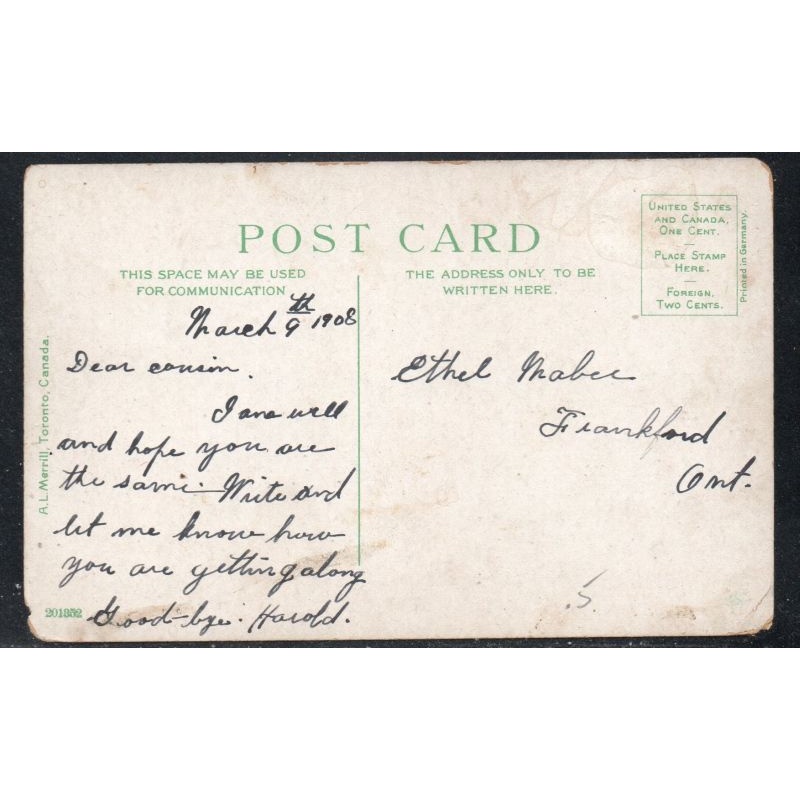 POST CARD
THIS SPACE MAY BE USED
FOR COMMUNICATION
THE ADDRESS ONLY TO BE
WRITTEN HERE.
UNITED STATES
AND CANADA,
ONE CENT.
PLACE STAMP
HERE.
FOREIGN,
TWO CENTS.
Printed in Germany.
A.L. Merrill, Toronto, Canada.
March 9th 1908
Dear cousin.
I am well
and hope you are
the same. Write and
let me know how
you are getting along
Good-bye. Harold.
201352
Ethel Mabee
Frankford
Ont.
.5.